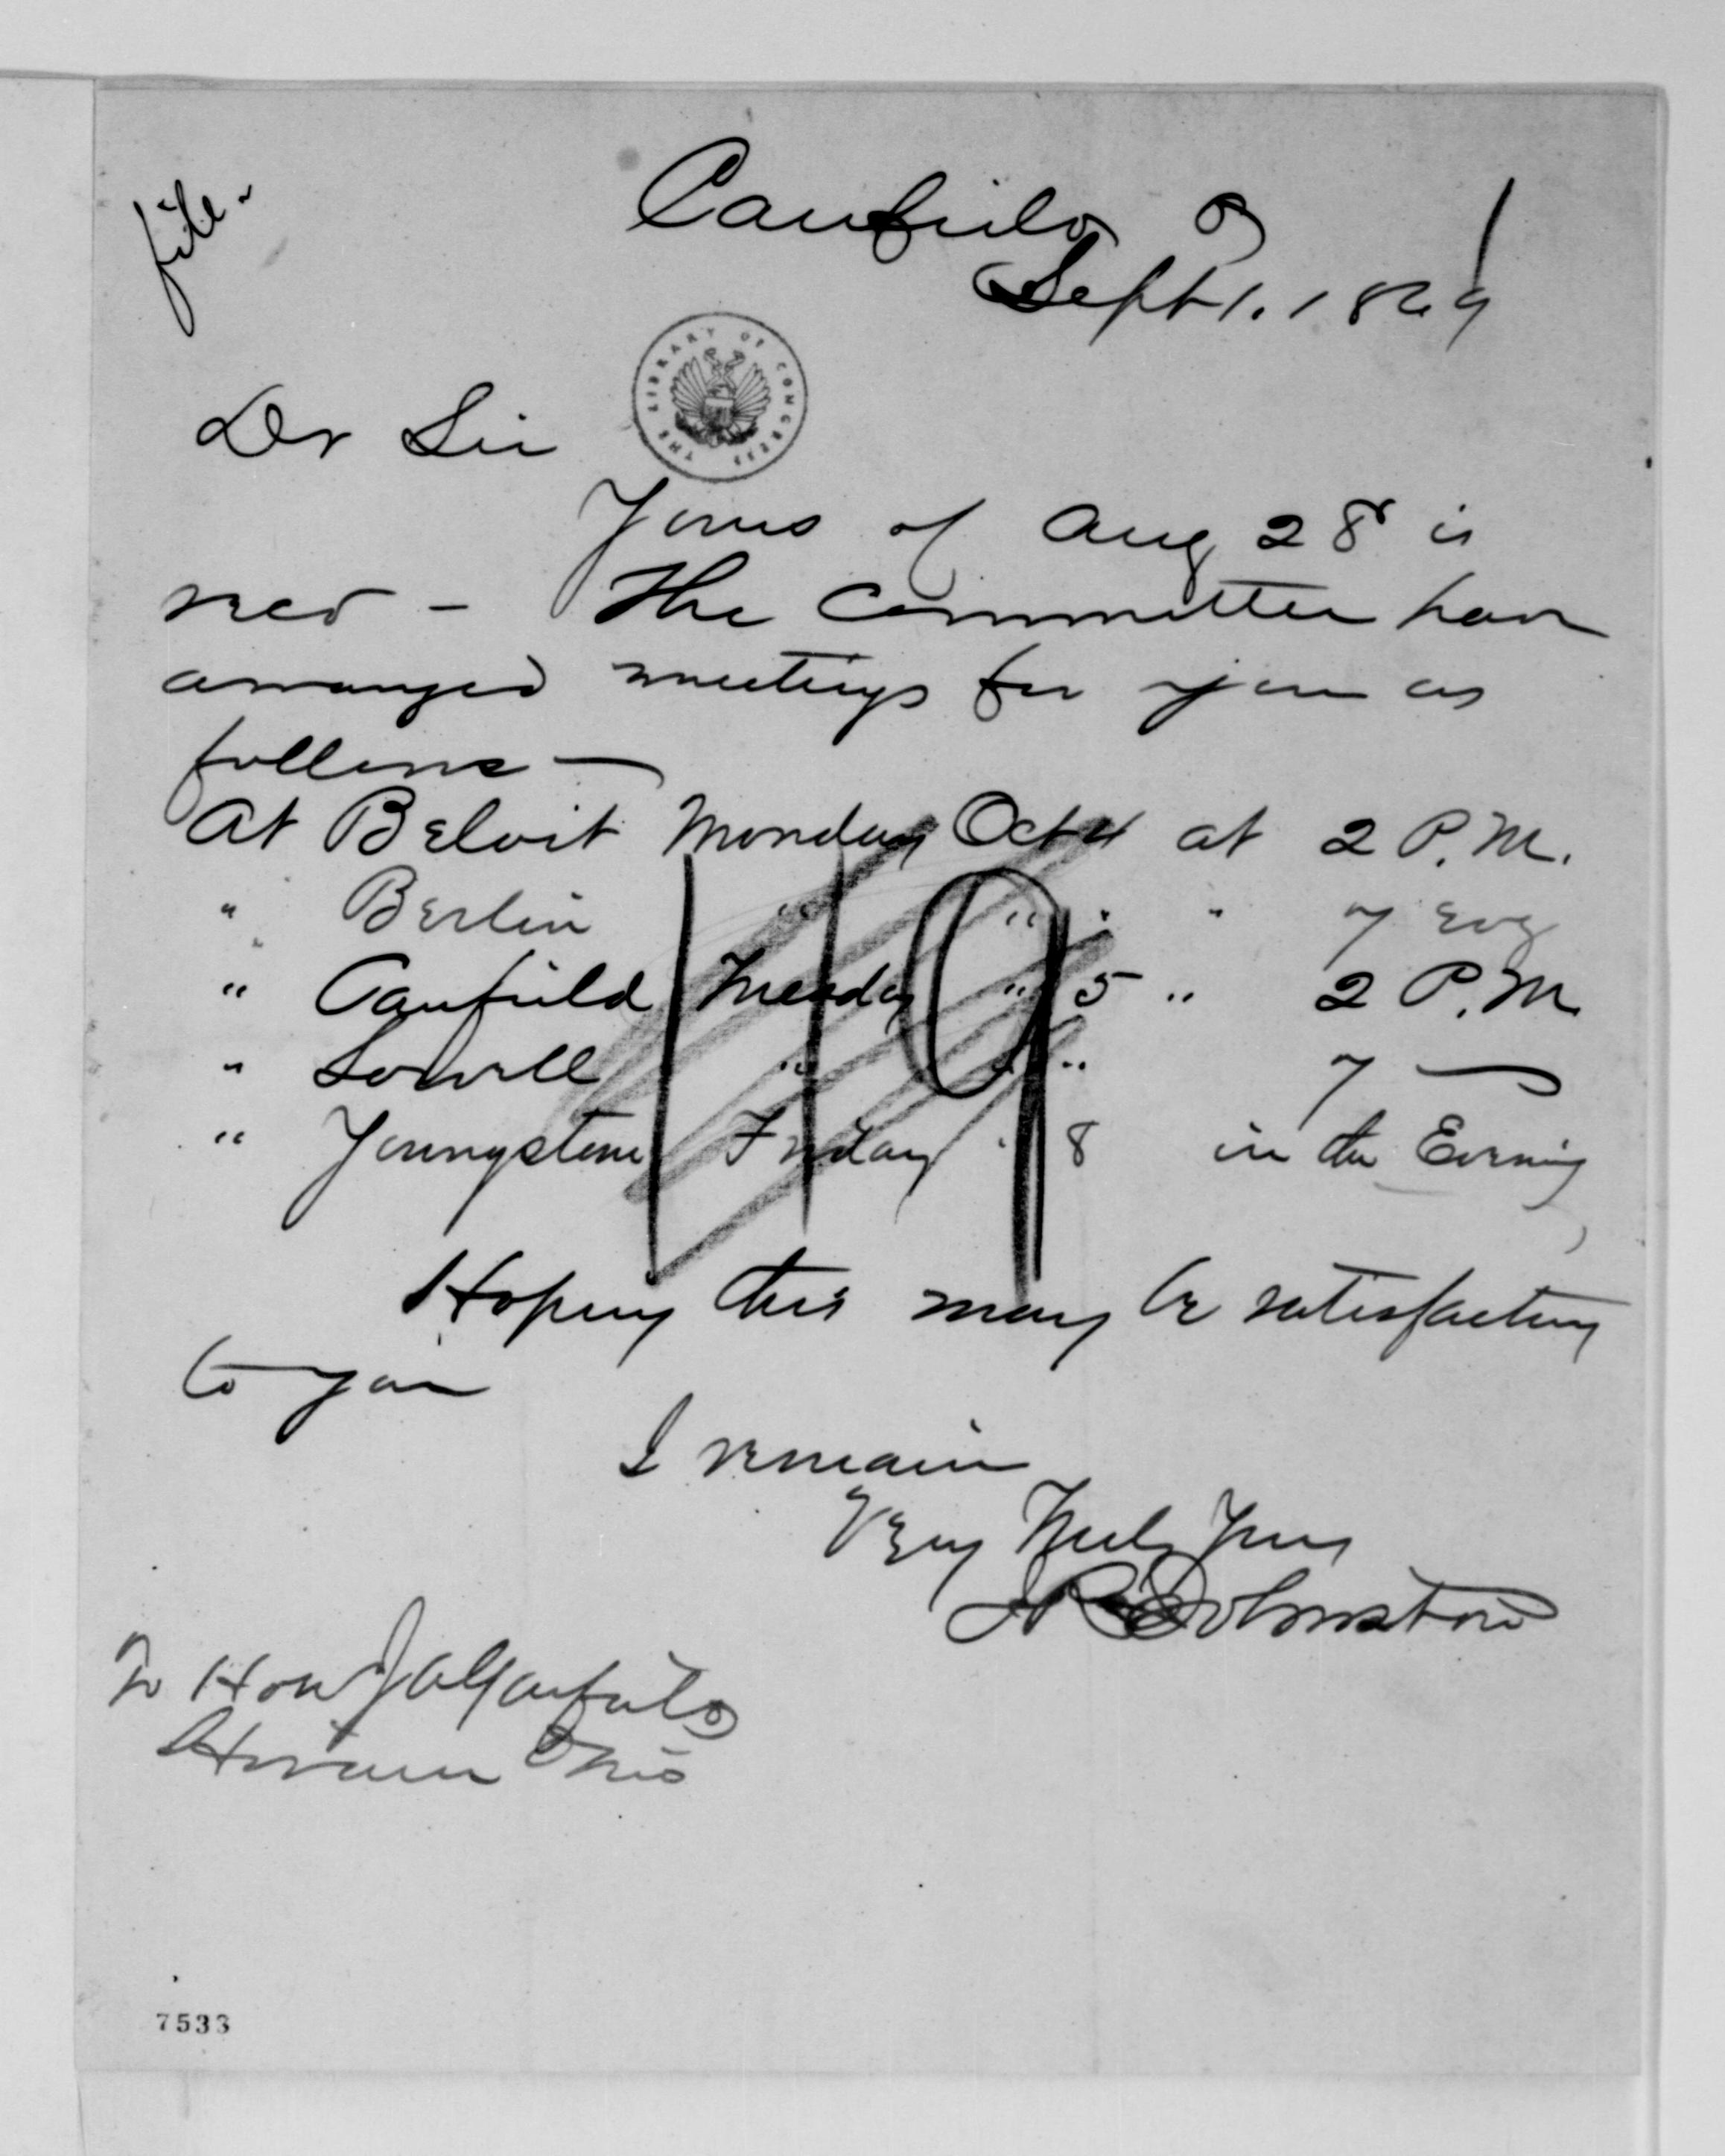 file -
Canfield O
Sept 1. 1869
THE LIBRARY OF CONGRESS
Dr Sir
Yours of Aug 28 is
recd - The Committee have
arranged meetings for you as
follows -
At Beloit Monday Oct 4 at 2 P.M.
" Berlin " " " " 7 Evg
" Canfield Tuesday " 5 " 2 P.M
" Lowell " " " 7 —
" Youngstown Friday " 8 in the Evening
119
Hoping this may be satisfactory
to you
I remain
Very Truly Yours
J R Johnston
To Hon J A Garfield
Hiram Ohio
7533